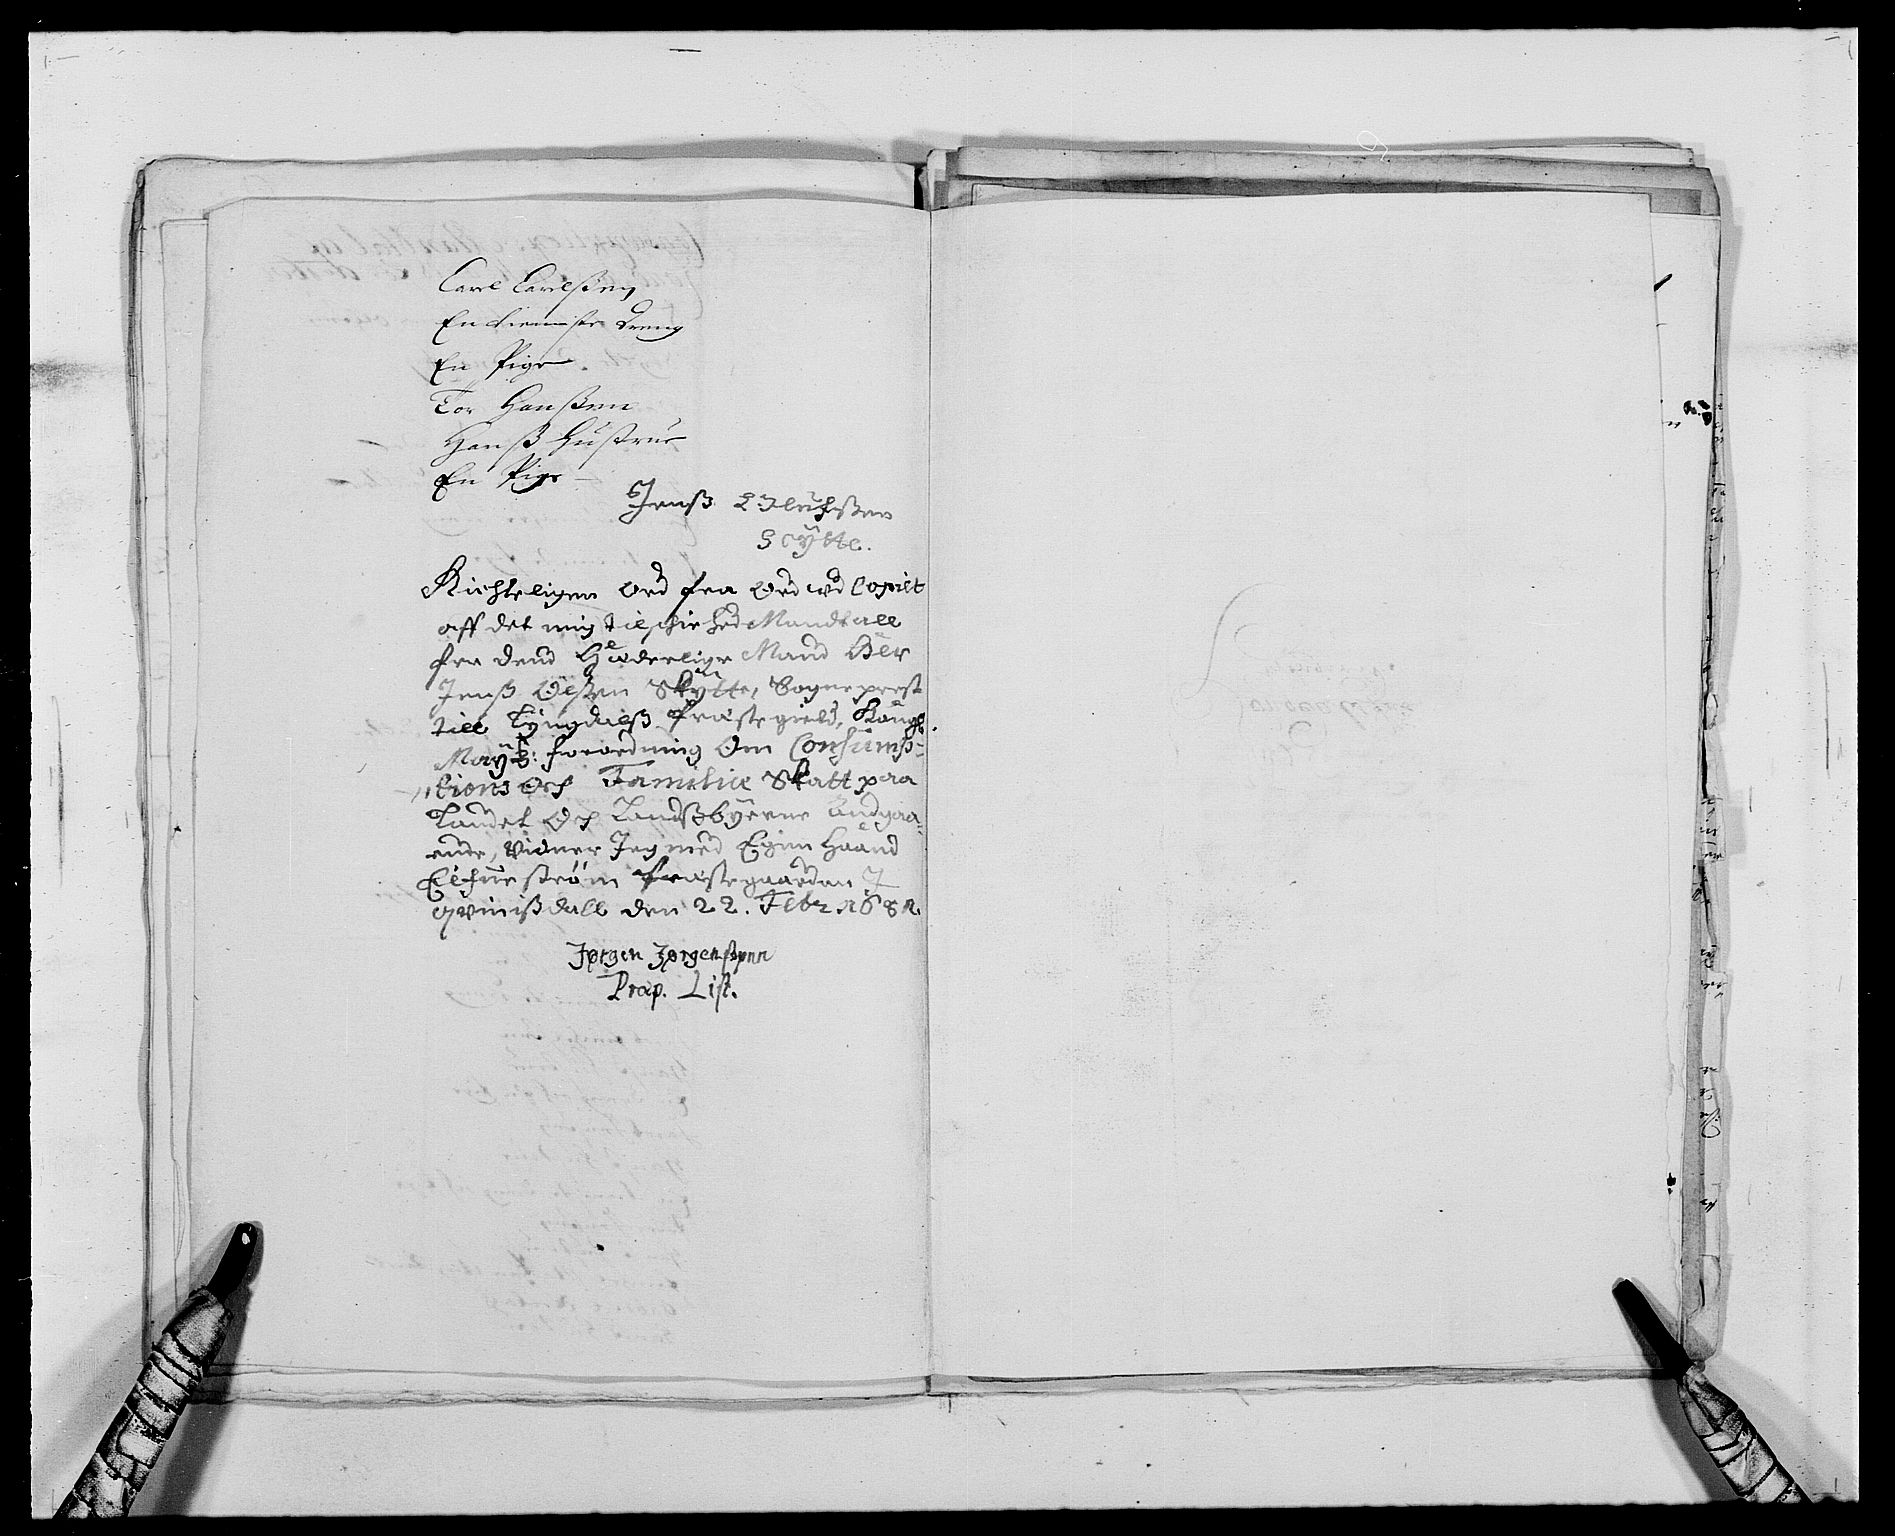 Carl Carlßen
En tieniste dreng
En Pige
Tor Hanßen
Hanß Hustrue
En Pige
Jenß Olufssen
Scÿtte.
Richteligen ord fra ord ud Copiit
aff det mig tilschichede Mandtall
fra dend Hæderlige Mand Her
Jenß Olßen Skÿtte, Sogneprest
till Lÿngdalß Præstegield, Kongl.
Mayß: forordning Om Consump=
tions Och Familie Skatt paa
Landet Och Landßbÿerne Andgaa=
ende, vidner Jeg med Egen Haand
Præstegaarden J
qvinißdall den 22. Febr 1682
Jørgen Jørgenssønn
Præp. List.